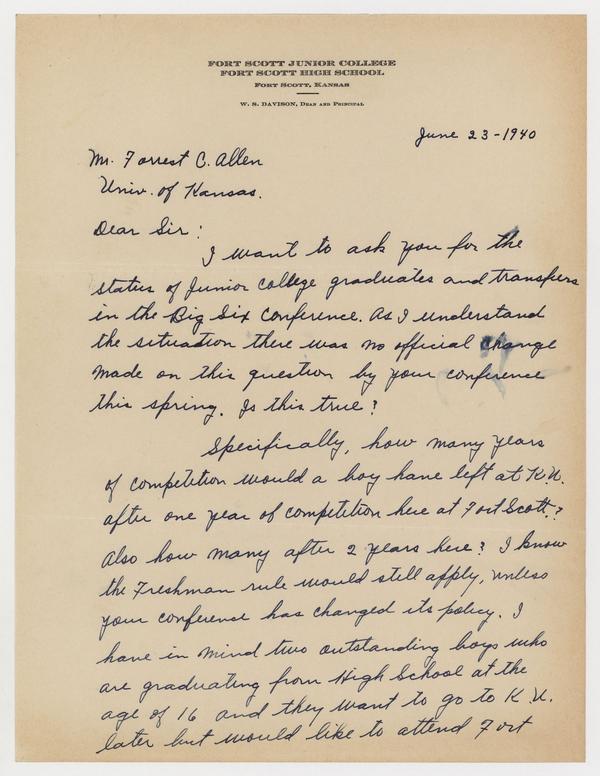 FORT SCOTT JUNIOR COLLEGE
FORT SCOTT HIGH SCHOOL
FORT SCOTT, KANSAS
W. S. DAVISON, DEAN AND PRINCIPAL
June 23-1940
Mr. Forrest C. Allen
Univ. of Kansas.
Dear Sir:
I want to ask you for the
status of Junior College graduates and transfers
in the Big Six Conference. As I understand
the situation there was no official change
made on this question by your conference
this spring. Is this true?
Specifically, how many years
of competition would a boy have left at K.U.
after one year of competition here at Fort Scott?
Also how many after 2 years here? I know
the Freshman rule would still apply, unless
your conference has changed its policy. I
have in mind two outstanding boys who
are graduating from High School at the
age of 16 and they want to go to K.U.
later but would like to attend Fort